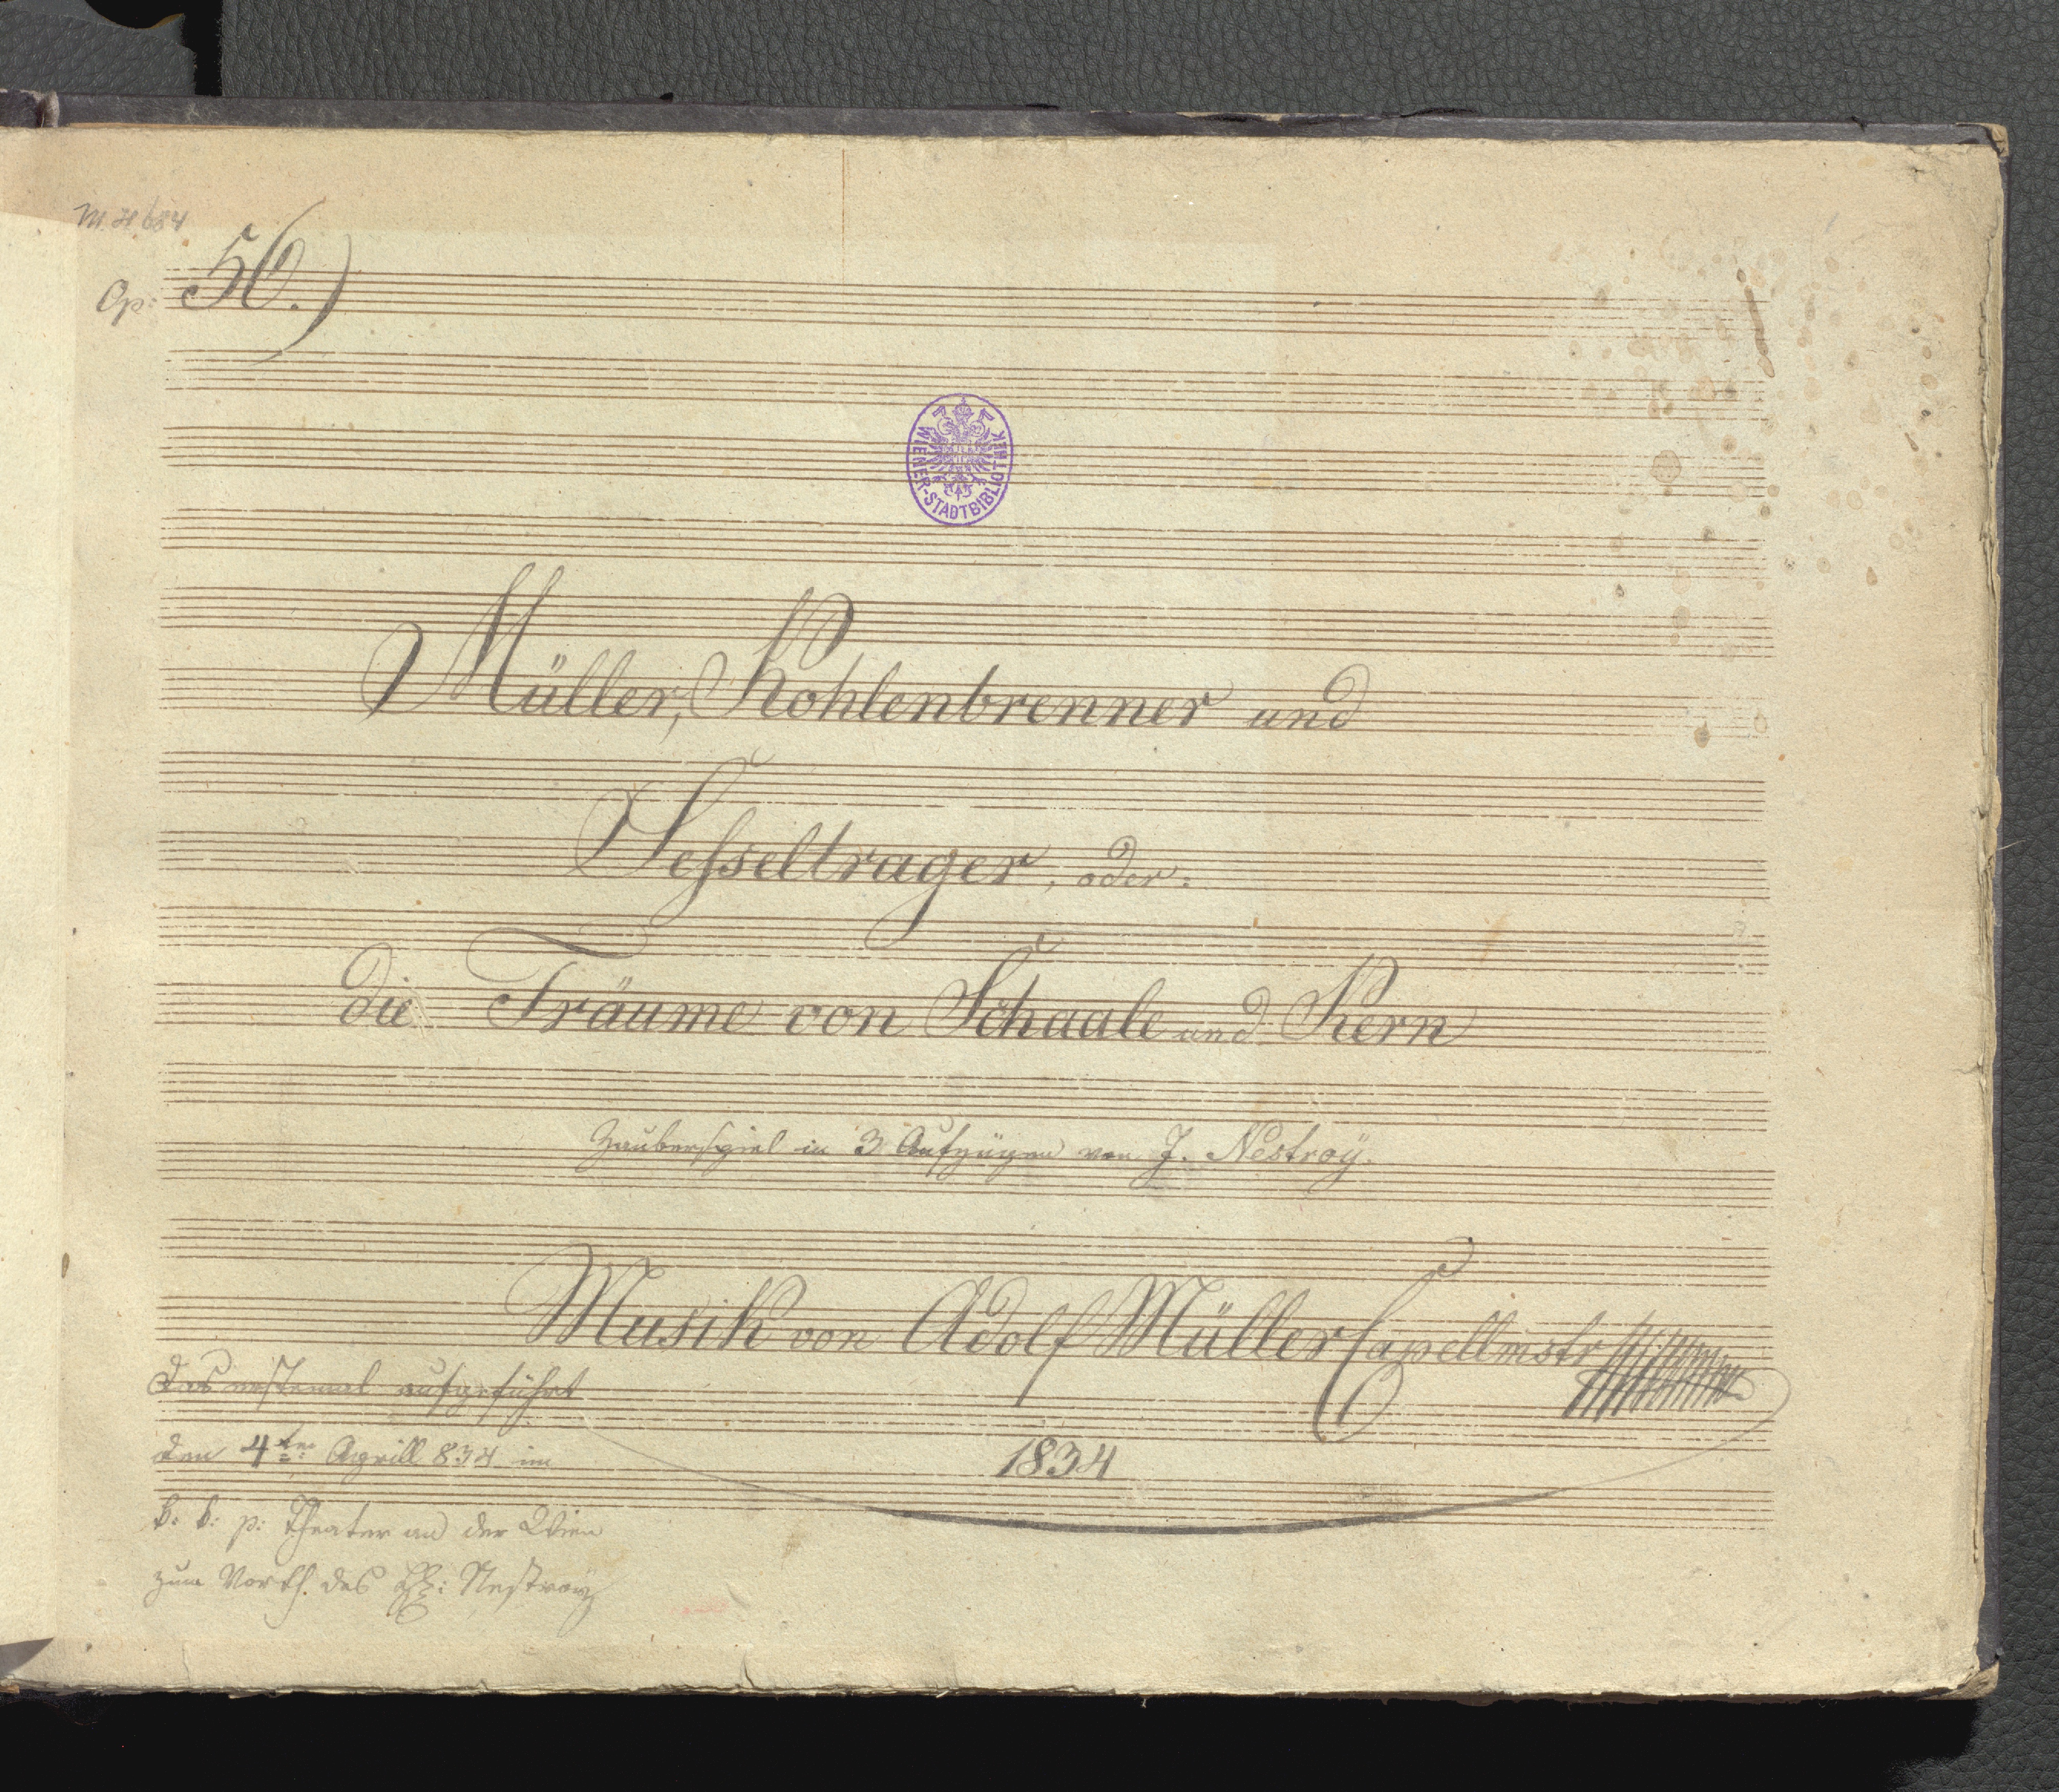 M.H 684
Op: 56.)
WIENER-STADTBIBLIOTHEK
Müller, Kohlenbrenner und
Sesseltrager, oder:
die Träume von Schaale und Kern
Zauberspiel in 3 Aufzügen von J. Nestroÿ.
Musik von Adolf Müller Capellmstr
das erstemal aufgeführt
den 4ten Aprill 834 im
k: k: p: Theater an der Wien
zum Vorth. des H: Nestroÿ
1834